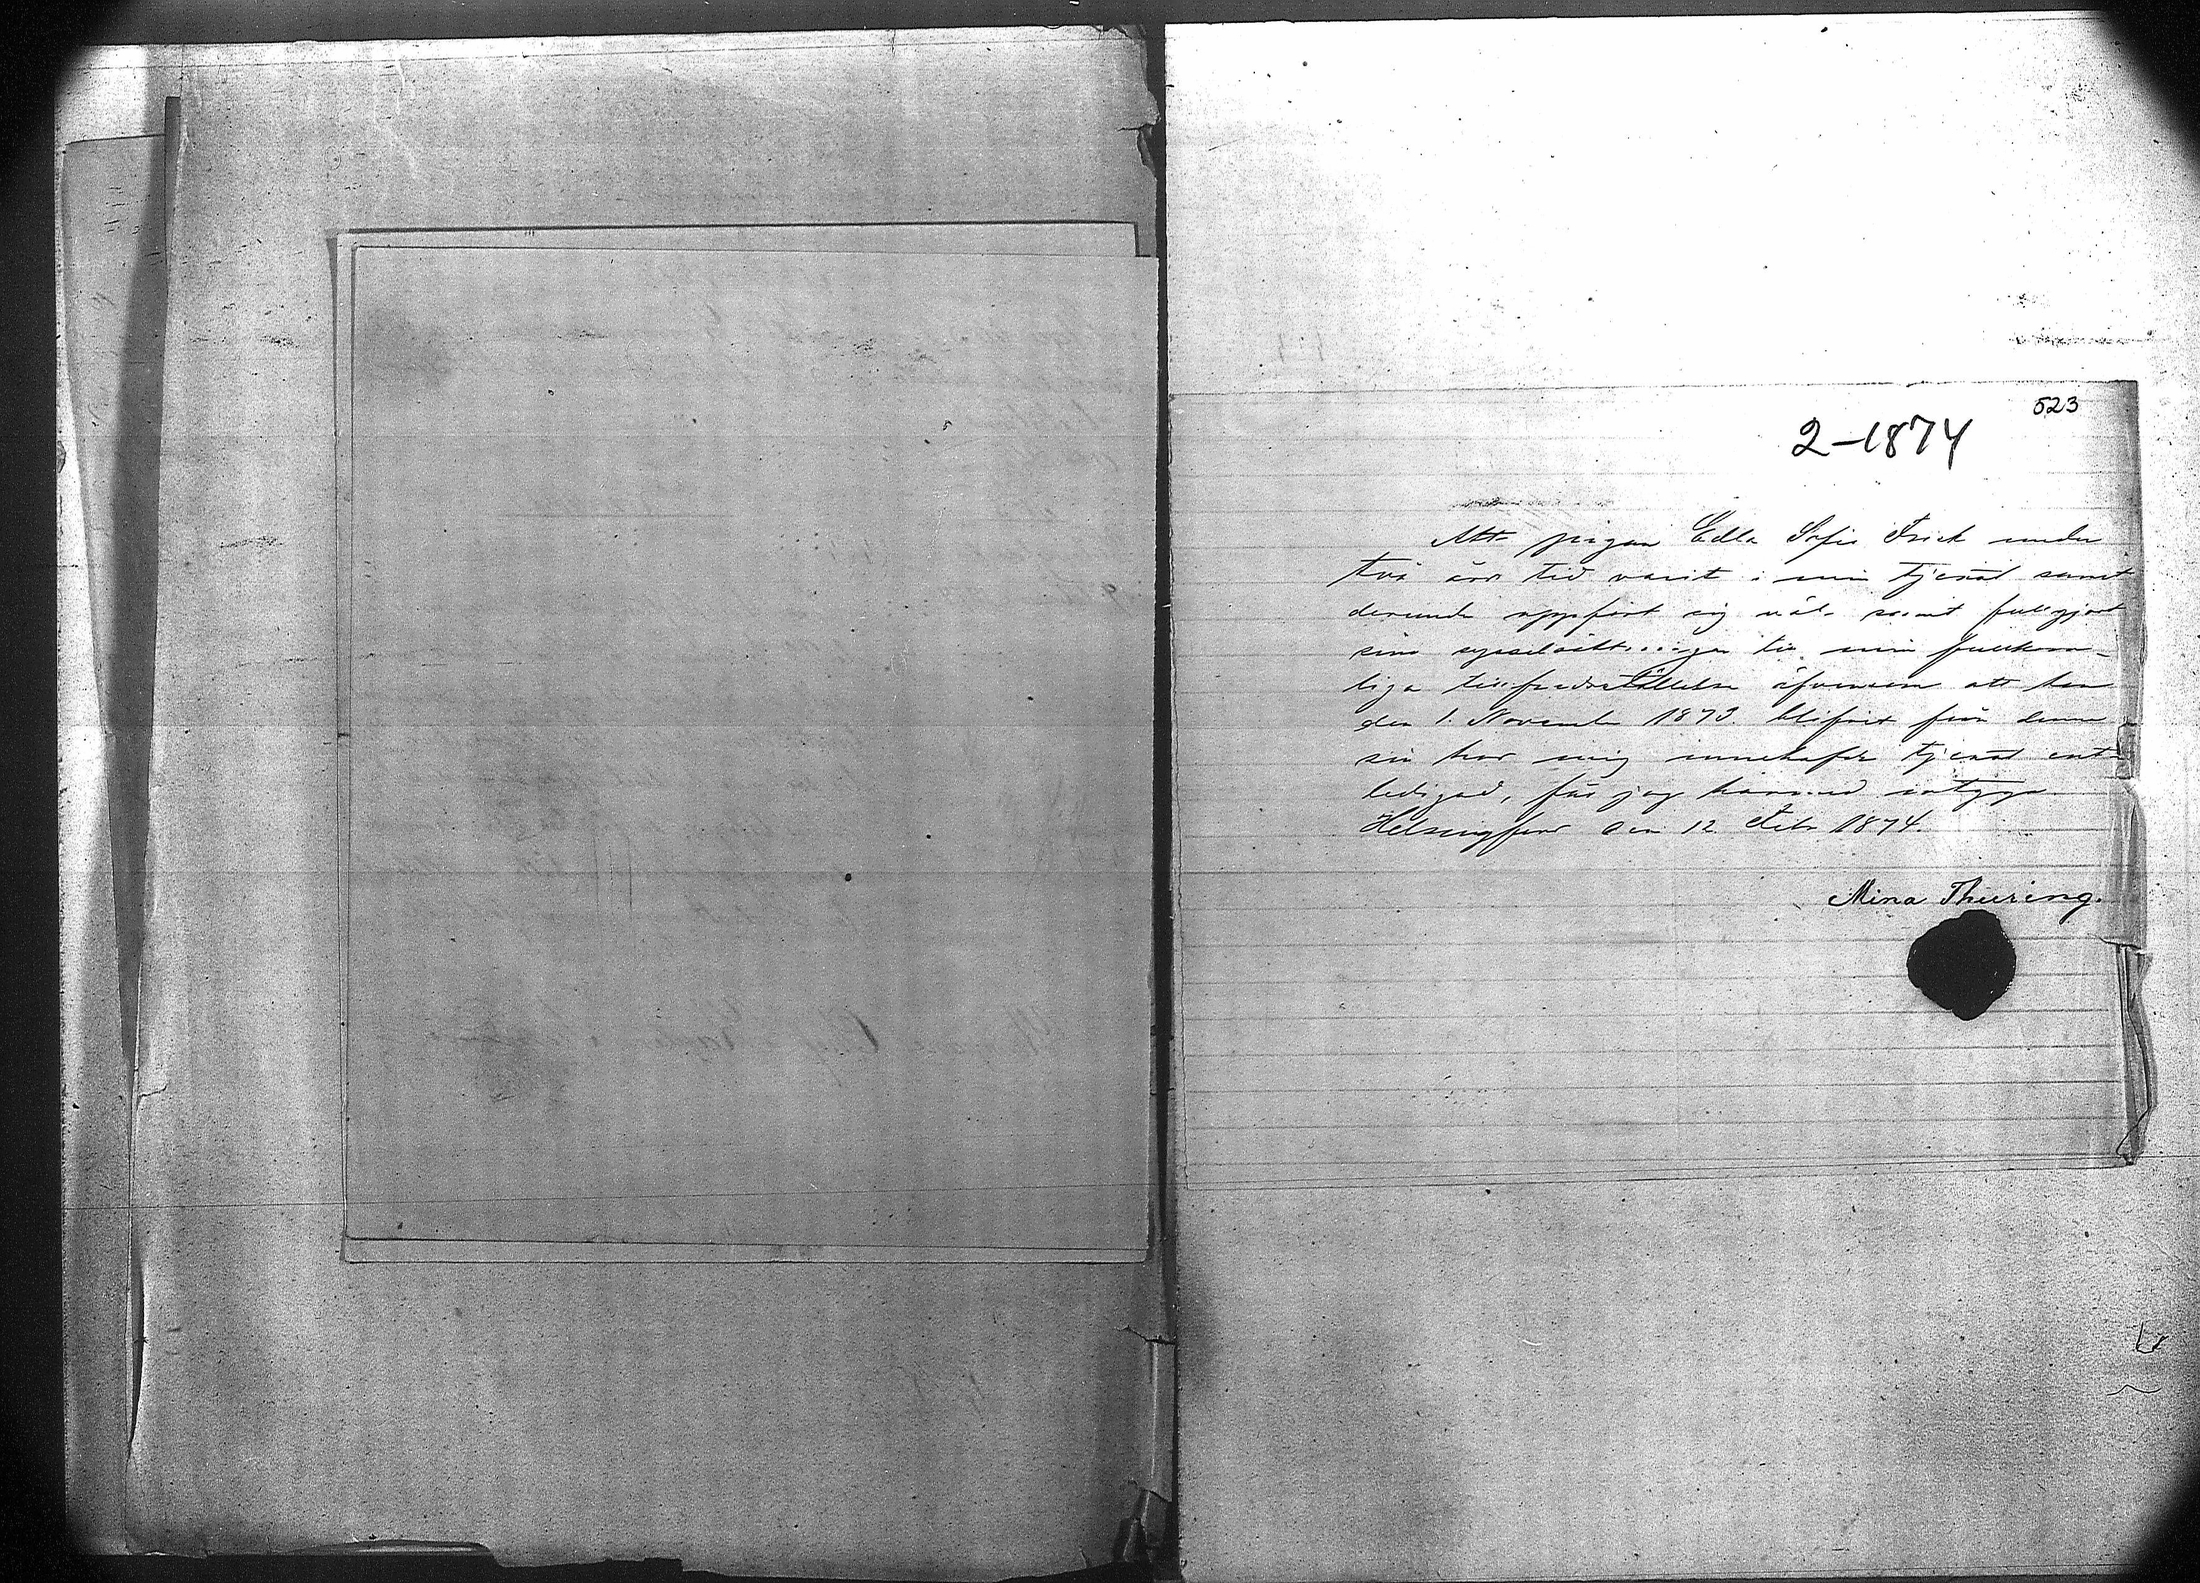 523
2-1874
Att pigan Edla Sofia Frick under
två års tid varit i min tjenst samt
derunder uppfört sig väl samt fullgjort
sina sysselsättningar till min fullkom-
liga tillfredsställelse äfvensom att hon
den 1. November 1873 blifvit från denna
sin hos mig innehafda tjenst ent-
ledigad, får jag härmed intyga.
Helsingfors den 12 Febr 1874.
Mina Thuring.